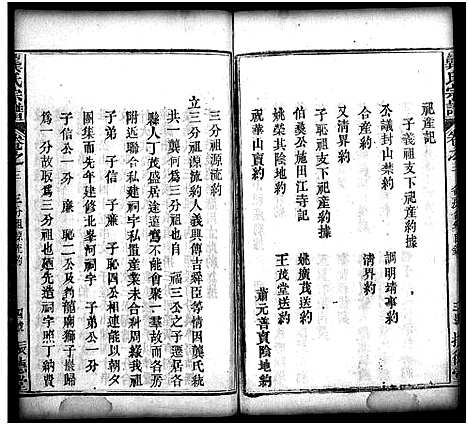 龔氏宗譜
祀產記
子義祖支下祀產約據
公議封山禁約
調明靖事約
又清界約
清界約
子恥祖支下祀產約據
伯奭公施田江寺記
姚廣茂送約
姚榮其陰地約
王茂堂送約
祝華山賣約
蕭元善賣陰地約
三分祖源流約
立三分祖源流約人義興傳吉舜臣等情因龔氏孰
共一龔何為三分祖也自 福三公之子遷居各
縣人丁茂盛居途遙遠不能會聚一羣故而各宜
附近聯合私建祠宇私置產業未合共商周綠我祖
子弟 子信 子廉 子恥四公相連能以成十
團集而先年建修北峯河祠宇 子弟公一分
子信公一分 廉 恥二公及約龍廟獅子擡歸
為一分故以為三分祖也然先造祠宇照丁納費
龔氏宗譜
三分祖源流約